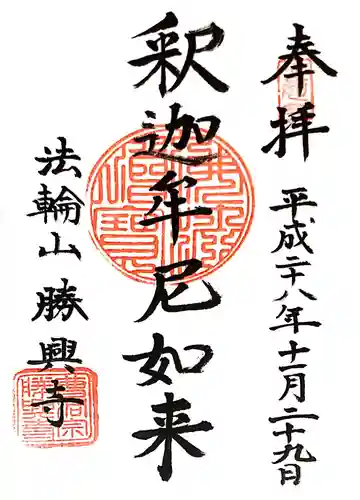 奉拝
平成二十八年十一月二十九日
釈迦牟尼如来
法輪山勝興寺
佛法僧寳